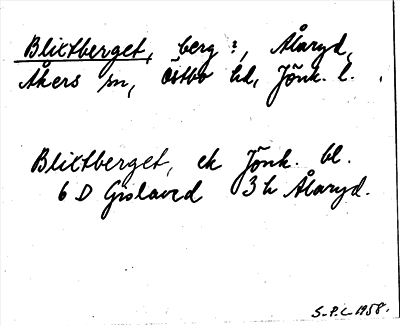 Blixtberget, berg ?, Ålaryd,
Åkers sn, Östbo hd, Jönk. l.
Blixtberget, ek Jönk. bl.
6 D Gislaved 3 h Ålaryd.
S-P.L 1958.